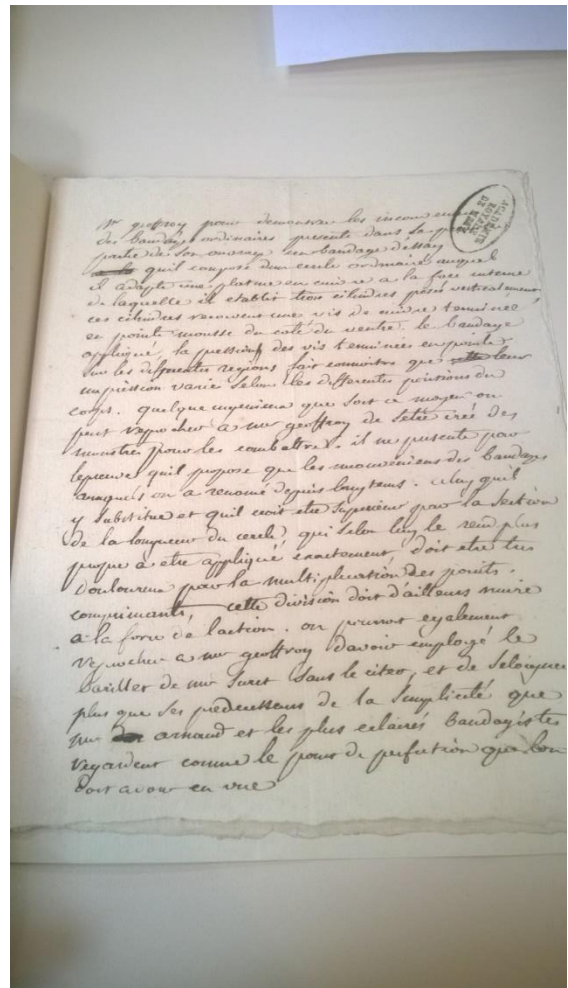 mr geoffroy pour demontrer les inconveniens
des bandages ordinaires presente dans la p
partie de son ouvrage un bandage dessay
quil compose dun cercle ordinaire auquel
il adapte une platine en cuivre a la face interne
de laquelle il etablit trois cilindres posés verticalement
ces cilindres recoivent une vis de cuivre terminée
en pointe mousse du coté du ventre. le bandage
appliqué, la pression des vis terminées en pointe
sur les differentes regions fait connoitre que leur
impression varie selon les differentes positions du
corps. quelque ingenieux que soit ce moyen on
peut reprocher a mr geoffroy de setre creé des
monstres pour les combattre. il ne presente par
lepreuve quil propose que les inconveniens des bandages
auxquels on a renoncé depuis longtems. celuy quil
y substitue et quil croit etre superieur par la section
de la longueur du cercle, qui selon luy le rend plus
propre a etre appliqué exactement, doit etre tres
douloureux par la multiplication des points
comprimants, cette division doit d'ailleurs nuire
a la force de laction. on pourroit egalement
reprocher a mr geoffroy davoir employé le
de mr Suret sans le citer, et de seloigner
plus que ses predecesseurs de la simplicité que
mr arnaud et les plus eclairés bandagistes
regardent comme le point de perfection que lon
doit avoir en vue
ACADEMIE
ROYALE
DE